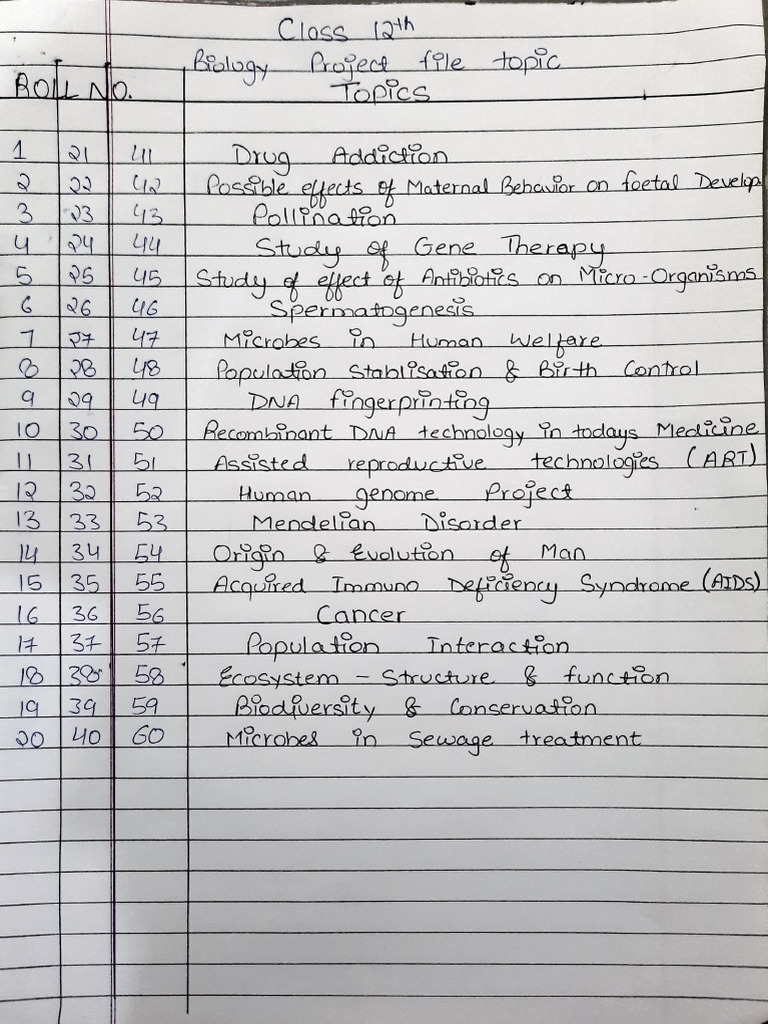 Class 12th
Biology Project file topic
ROLL NO. Topics
1 21 41 Drug Addiction
2 22 42 Possible effects of Maternal Behavior on foetal Develop
3 23 43 Pollination
4 24 44 Study of Gene Therapy
5 25 45 Study of effect of Antibiotics on Micro-Organisms
6 26 46 Spermatogenesis
7 27 47 Microbes in Human Welfare
8 28 48 Population Stablisation & Birth Control
9 29 49 DNA fingerprinting
10 30 50 Recombinant DNA technology in todays Medicine
11 31 51 Assisted reproductive technologies (ART)
12 32 52 Human genome Project
13 33 53 Mendelian Disorder
14 34 54 Origin & Evolution of Man
15 35 55 Acquired Immuno Deficiency Syndrome (AIDS)
16 36 56 Cancer
17 37 57 Population Interaction
18 38 58 Ecosystem - Structure & function
19 39 59 Biodiversity & Conservation
20 40 60 Microbes in Sewage treatment